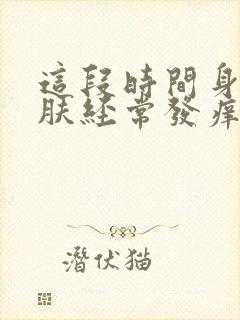 這段時間身
肤经常發痒
潛伏猫